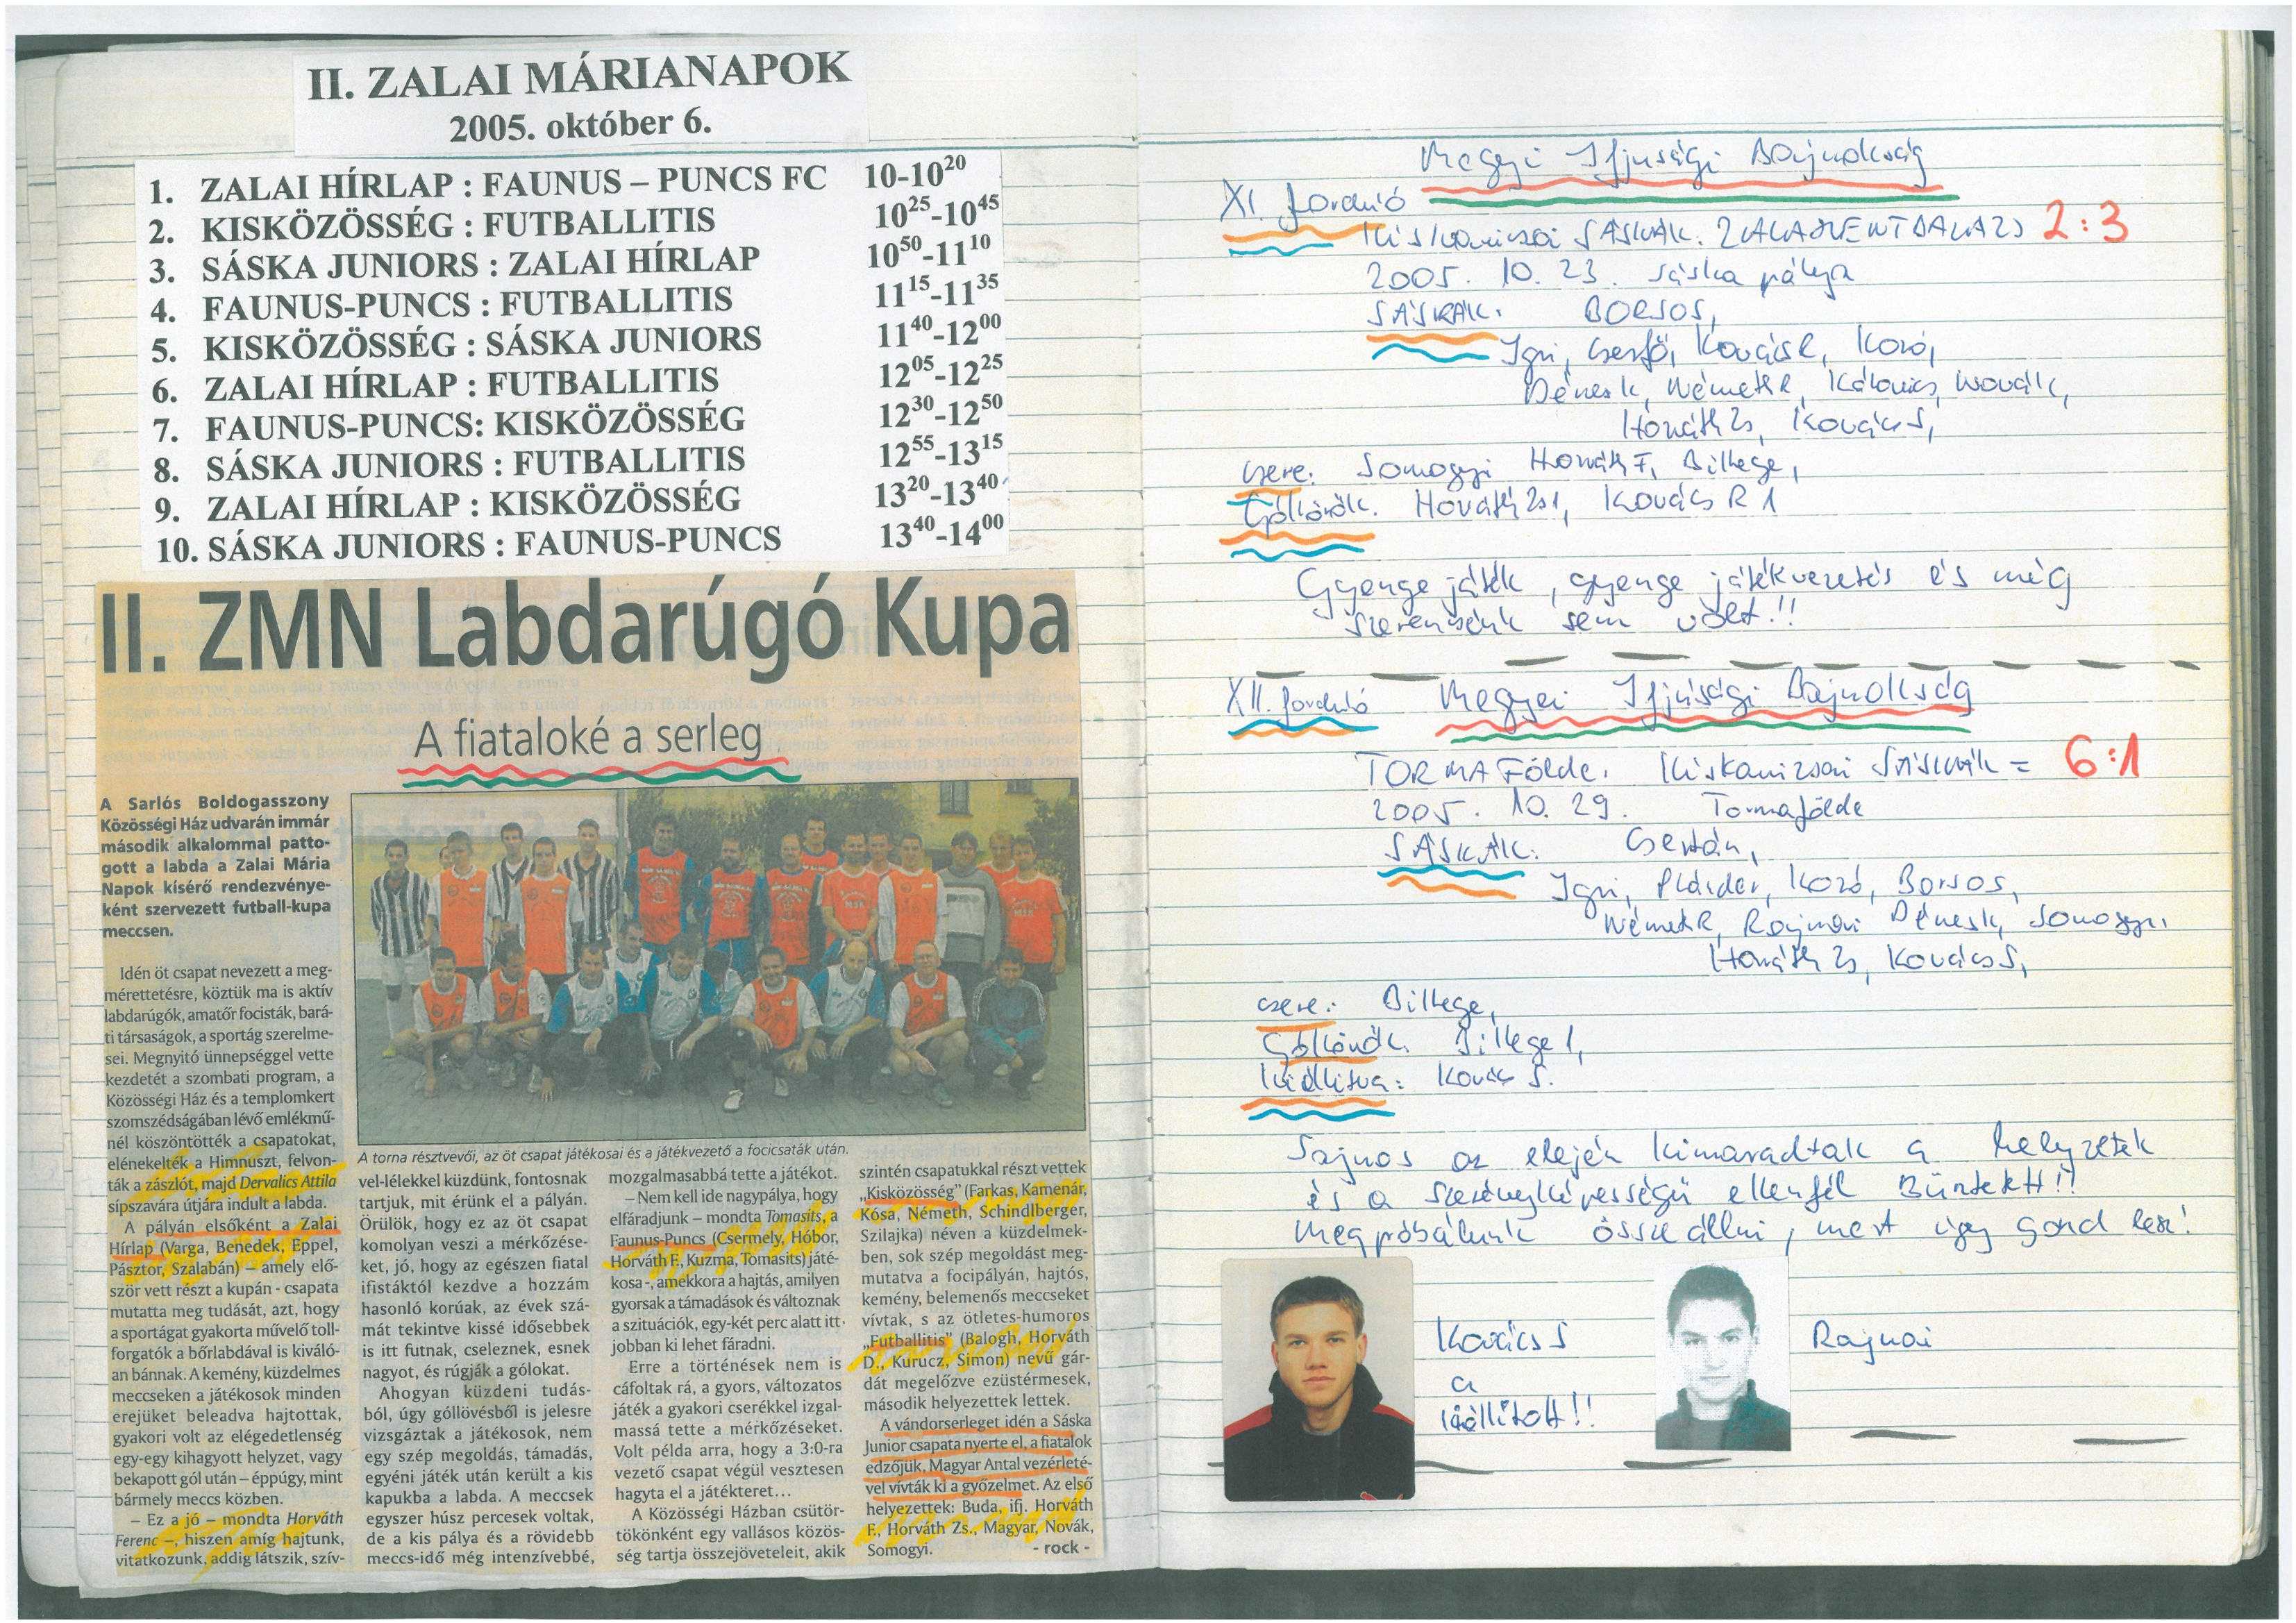 II. ZALAI MÁRIANAPOK
2005. október 6.
1. ZALAI HÍRLAP : FAUNUS – PUNCS FC 10-10²⁰
2. KISKÖZÖSSÉG : FUTBALLITIS 10²⁵-10⁴⁵
3. SÁSKA JUNIORS : ZALAI HÍRLAP 10⁵⁰-11¹⁰
4. FAUNUS-PUNCS : FUTBALLITIS 11¹⁵-11³⁵
5. KISKÖZÖSSÉG : SÁSKA JUNIORS 11⁴⁰-12⁰⁰
6. ZALAI HÍRLAP : FUTBALLITIS 12⁰⁵-12²⁵
7. FAUNUS-PUNCS: KISKÖZÖSSÉG 12³⁰-12⁵⁰
8. SÁSKA JUNIORS : FUTBALLITIS 12⁵⁵-13¹⁵
9. ZALAI HÍRLAP : KISKÖZÖSSÉG 13²⁰-13⁴⁰
10. SÁSKA JUNIORS : FAUNUS-PUNCS 13⁴⁰-14⁰⁰
II. ZMN Labdarúgó Kupa
A fiataloké a serleg
A Sarlós Boldogasszony
Közösségi Ház udvarán immár
második alkalommal patto-
gott a labda a Zalai Mária
Napok kísérő rendezvénye-
ként szervezett futball-kupa
meccsen.
Idén öt csapat nevezett a meg-
mérettetésre, köztük ma is aktív
labdarúgók, amatőr focisták, bará-
ti társaságok, a sportág szerelme-
sei. Megnyitó ünnepséggel vette
kezdetét a szombati program, a
Közösségi Ház és a templomkert
szomszédságában lévő emlékmű-
nél köszöntötték a csapatokat,
elénekelték a Himnuszt, felvon-
ták a zászlót, majd Dervalics Attila
sípszavára útjára indult a labda.
A pályán elsőként a Zalai
Hírlap (Varga, Benedek, Eppel,
Pásztor, Szalabán) – amely elő-
ször vett részt a kupán - csapata
mutatta meg tudását, azt, hogy
a sportágat gyakorta művelő toll-
forgatók a bőrlabdával is kiváló-
an bánnak. A kemény, küzdelmes
meccseken a játékosok minden
erejüket beleadva hajtottak,
gyakori volt az elégedetlenség
egy-egy kihagyott helyzet, vagy
bekapott gól után – éppúgy, mint
bármely meccs közben.
– Ez a jó – mondta Horváth
Ferenc –, hiszen amíg hajtunk,
vitatkozunk, addig látszik, szív-
A torna résztvevői, az öt csapat játékosai és a játékvezető a focicsaták után.
vel-lélekkel küzdünk, fontosnak
tartjuk, mit érünk el a pályán.
Örülök, hogy ez az öt csapat
komolyan veszi a mérkőzése-
ket, jó, hogy az egészen fiatal
ifistáktól kezdve a hozzám
hasonló korúak, az évek szá-
mát tekintve kissé idősebbek
is itt futnak, cseleznek, esnek
nagyot, és rúgják a gólokat.
Ahogyan küzdeni tudás-
ból, úgy góllövésből is jelesre
vizsgáztak a játékosok, nem
egy szép megoldás, támadás,
egyéni játék után került a kis
kapukba a labda. A meccsek
egyszer húsz percesek voltak,
de a kis pálya és a rövidebb
meccs-idő még intenzívebbé,
mozgalmasabbá tette a játékot.
–Nem kell ide nagypálya, hogy
elfáradjunk – mondta Tomasits, a
Faunus-Puncs (Csermely, Hóbor,
Horváth F., Kuzma, Tomasits) játé-
kosa -, amekkora a hajtás, amilyen
gyorsak a támadások és változnak
a szituációk, egy-két perc alatt itt
jobban ki lehet fáradni.
Erre a történések nem is
cáfoltak rá, a gyors, változatos
játék a gyakori cserékkel izgal-
massá tette a mérkőzéseket.
Volt példa arra, hogy a 3:0-ra
vezető csapat végül vesztesen
hagyta el a játékteret…
A Közösségi Házban csütör-
tökönként egy vallásos közös-
ség tartja összejöveteleit, akik
szintén csapatukkal részt vettek
„Kisközösség” (Farkas, Kamenár,
Kósa, Németh, Schindlberger,
Szilajka) néven a küzdelmek-
ben, sok szép megoldást meg-
mutatva a focipályán, hajtós,
kemény, belemenős meccseket
vívtak, s az ötletes-humoros
„Futballitis” (Balogh, Horváth
D., Kurucz, Simon) nevű gár-
dát megelőzve ezüstérmesek,
második helyezettek lettek.
A vándorserleget idén a Sáska
Junior csapata nyerte el, a fiatalok
edzőjük, Magyar Antal vezérleté-
vel vívták ki a győzelmet. Az első
helyezettek: Buda, ifj. Horváth
F., Horváth Zs., Magyar, Novák,
Somogyi. - rock -
Megyei Ifjusági Bajnokság
XI. forduló
Kiskanizsai SÁSKÁK: ZALASZENTBALÁZS 2:3
2005. 10. 23. Sáska pálya
SÁSKÁK: BORSOS,
Igri, Cserfő, Kovács R, Kozó,
Dénes K, Németh R, Kálovics, Novák,
Horváth Zs, Kovács S,
csere: Somogyi Horváth F, Billege,
Góllövők: Horváth Zs 1, Kovács R 1
Gyenge játék, gyenge játékvezetés és még
szerencsénk sem volt!!
XII. forduló Megyei Ifjúsági Bajnokság
TORMAFölde: Kiskanizsai SÁSKÁK = 6:1
2005. 10. 29. Tormafölde
SÁSKÁK: Csertán,
Igri, Plánder, Kozó, Borsos,
Németh R, Rajnai Dénes K, Somogyi,
Horváth Zs, Kovács S,
csere: Billege,
Góllövők: Billege 1,
Kiállítva: Kovács S.
Sajnos az elején kimaradtak a helyzetek
és a szerényképességű ellenfél Büntetett!!
Megpróbálunk összeállni, mert így gond lesz!
Kovács S
a
kiállított!!
Rajnai